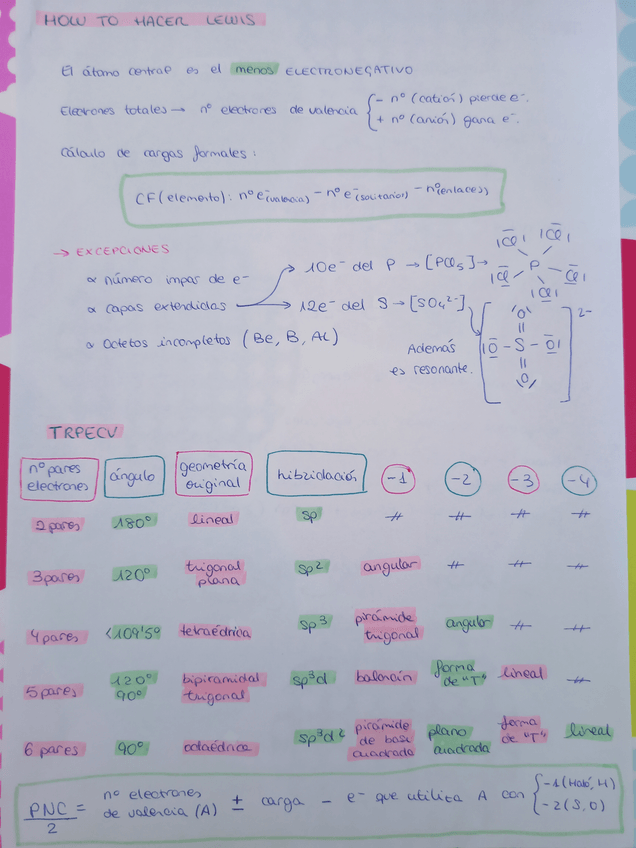 HOW TO HACER LEWIS
El átomo central es el menos ELECTRONEGATIVO
Electrones totales → nº electrones de valencia { - nº (catión) pierde e⁻.
+ nº (anión) gana e⁻.
Cálculo de cargas formales:
CF (elemento): nº e⁻(valencia) - nº e⁻(solitarios) - nº(enlaces)
→ EXCEPCIONES
∝ número impar de e⁻
∝ capas extendidas → 10e⁻ del P → [PCl₅] →
→ 12e⁻ del S → [SO₄²⁻]
∝ Octetos incompletos (Be, B, Al)
Además
es resonante.
|Cl| |Cl|
P
|Cl| |Cl|
|Cl|
O
||
|O - S - O|
||
O
2-
TRPECV
nº pares electrones ángulo geometría original hibridación -1 -2 -3 -4
2 pares 180º lineal sp # # # #
3 pares 120º trigonal plana sp² angular # # #
4 pares <109'5º tetraédrica sp³ pirámide trigonal angular # #
5 pares 120º 90º bipiramidal trigonal sp³d balancín forma de "T" lineal #
6 pares 90º octaédrica sp³d² pirámide de base cuadrada plano cuadrada forma de "T" lineal
PNC/2 = nº electrones de valencia (A) ± carga - e⁻ que utiliza A con { -1 (Haló, H)
-2 (S, O)